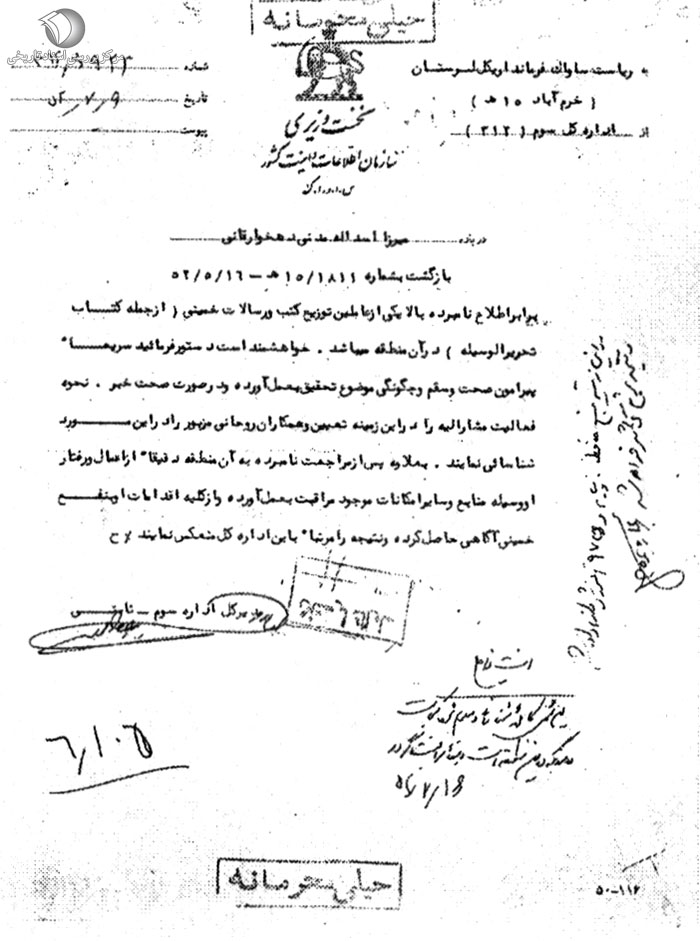 خیلی محرمانه
مرکز بررسی اسناد تاریخی
به ریاست ساواک فرمانداریکل لرستان
شماره
( خرم آباد ۱۵ هـ )
تاریخ ۵۲/۷/۹
از اداره کل سوم ( ۳۱۲ )
پیوست
نخست وزیری
سازمان اطلاعات و امنیت کشور
س.ا.و.ا.ک
درباره میرزا اسدالله مدنی دهخوارقانی
بازگشت بشماره ۱۵/۱۸۱۱ هـ - ۵۲/۵/۱۶
برابر اطلاع نامبرده بالا یکی از عاملین توزیع کتب و رسالات خمینی ( از جمله کتاب
تحریرالوسیله ) در آن منطقه میباشد . خواهشمند است دستور فرمائید سریعا"
پیرامون صحت و سقم و چگونگی موضوع تحقیق بعمل آورده و در صورت صحت خبر . نحوه
فعالیت مشارالیه را در این زمینه تعیین و همکاران روحانی مزبور را در این مورد
شناسائی نمایند . بعلاوه پس از مراجعت نامبرده به آن منطقه دقیقا" از اعمال و رفتار
او وسیله منابع و سایر امکانات موجود مراقبت بعمل آورده و از کلیه اقدامات او بنفع
خمینی آگاهی حاصل کرده و نتیجه را مرتبا" باین اداره کل منعکس نمایند ٪ ح
مدیر کل اداره سوم - ثابتی
امنیت داخلی
۵۲/۷/۱۶
۶/۱۰۵
خیلی محرمانه
۵۰-۱۱۲